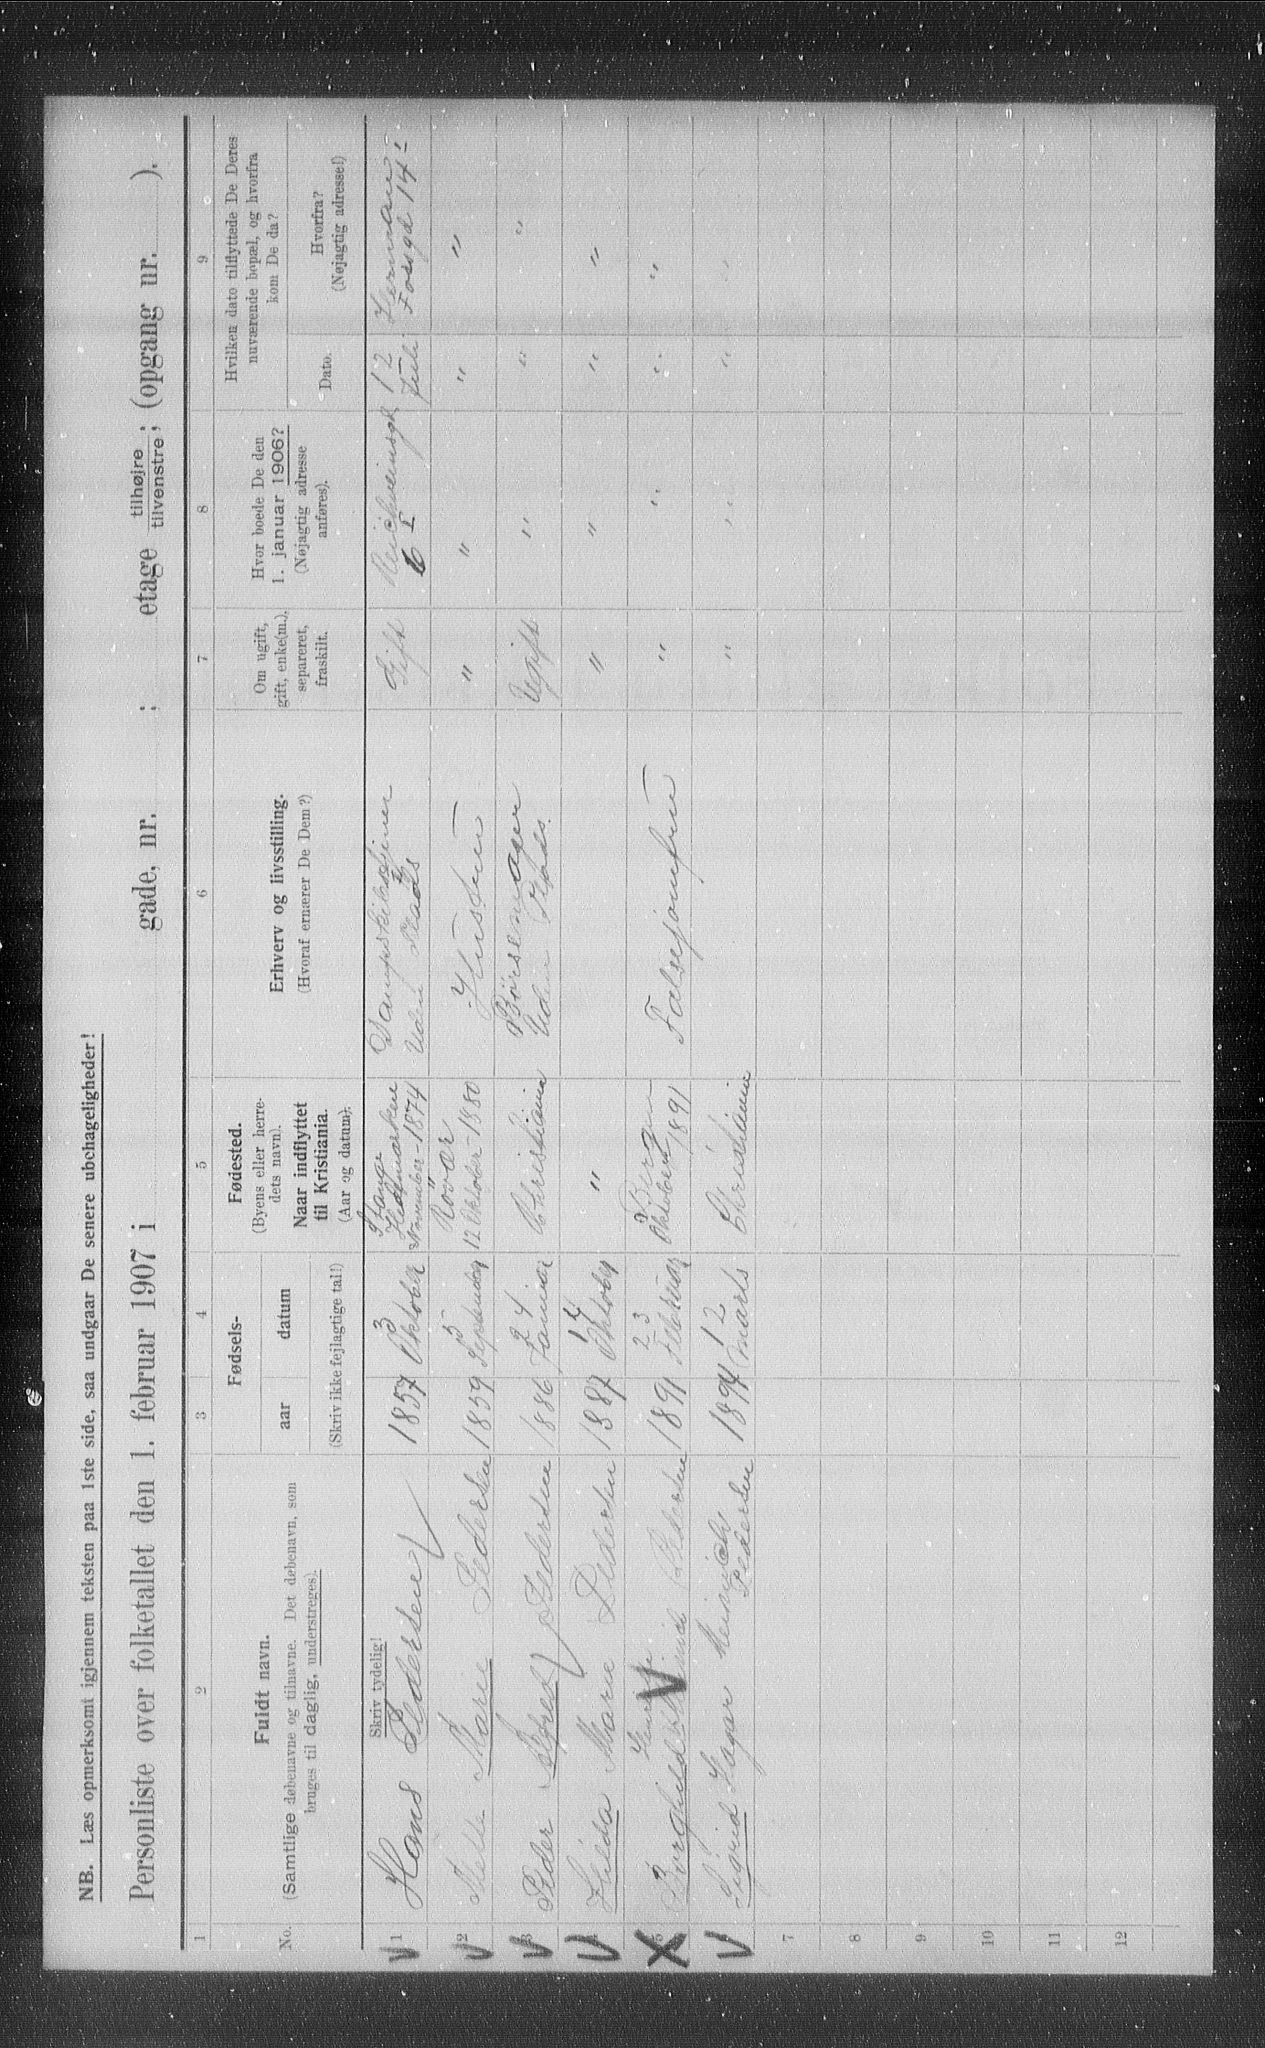 NB. Læs opmerksomt igjennem teksten paa 1ste side, saa undgaar De senere ubehageligheder!
Personliste over folketallet den 1. februar 1907 i gade, nr. ; etage tilhøjre tilvenstre; (opgang nr. ).
1 2 3 4 5 6 7 8 9
No.
Fuldt navn.
(Samtlige døbenavne og tilnavne. Det døbenavn, som
bruges til daglig, understreges).
Fødsels-
aar
datum
(Skriv ikke fejlagtige tal!)
Fødested.
(Byens eller herre-
dets navn).
Naar indflyttet
til Kristiania.
(Aar og datum).
Erhverv og livsstilling.
(Hvoraf ernærer De Dem?)
Om ugift,
gift, enke(m.),
separeret,
fraskilt.
Hvor boede De den
1. januar 1906?
(Nøjagtig adresse
anføres).
Hvilken dato tilflyttede De Deres
nuværende bopæl, og hvorfra
kom De da?
Dato.
Hvorfra?
(Nøjagtig adresse!)
Skriv tydelig!
1 Hans Pedersen 1857 3 Oktober Stange Hedemarken November-1874 Uden Plads Gift 6 I 12 Juli Herman Fossgd 14
2 Mille Marie Pedersen 1859 5 September 12 Oktober-1880 Hustru " " " "
3 Peder Alfred Pedersen 1886 24 Januar Christiania Børsemager Uden Plads. Ugift " " "
4 Hilda Marie Pedersen 1887 14 Oktober " " " " "
5 Borghild Pedersen 1891 23 Februar Bergen Oktober 1891 Falsejomfru " " " "
6 Sigrid Dagmar Pedersen 1894 12 Marts Christiania " " " "
7
8
9
10
11
12